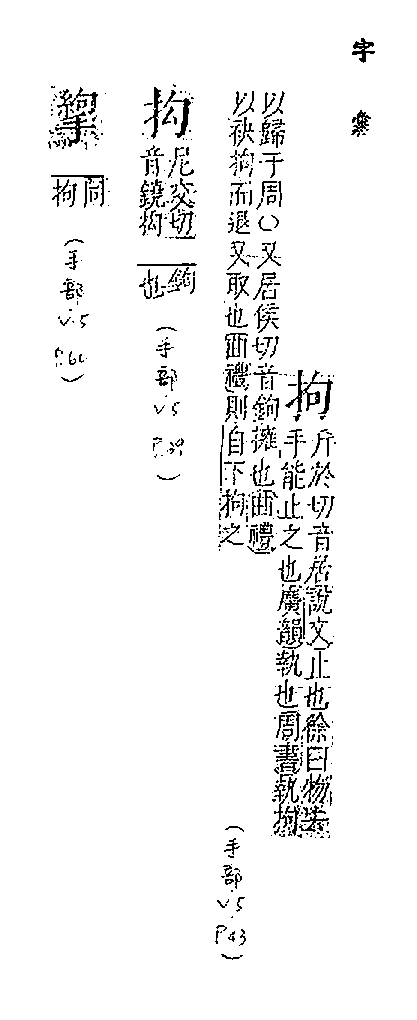 字彙
拘
斤於切音居說文止也徐曰物去
手能止之也廣韻執也周書執拘
以歸于周○又居侯切音鉤擁也曲禮
以袂拘而退又取也曲禮則自下拘之
(手部 V.5 P.43)
抅
尼交切 鉤
音鐃抅 也
(手部 V.5 P.39)
同
拘
(手部 V.5 P.66)